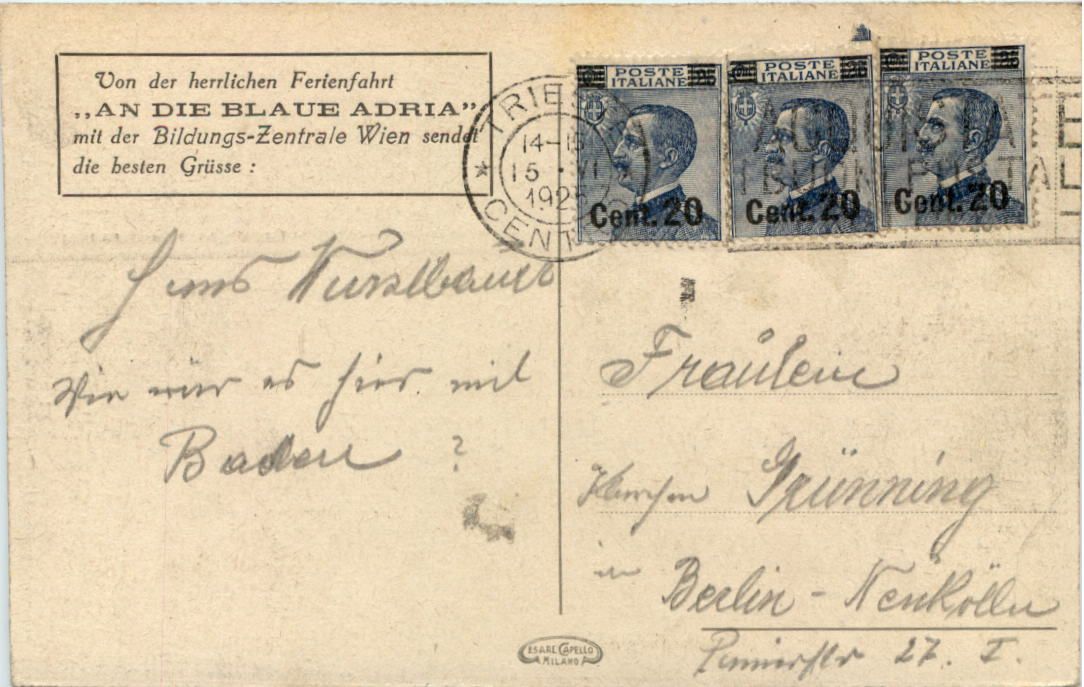 Von der herrlichen Ferienfahrt
„AN DIE BLAUE ADRIA"
mit der Bildungs-Zentrale Wien sendet
die besten Grüsse:
TRIESTE
14-15
15 · VI
1925
CENTRO
POSTE ITALIANE 25
Cent. 20
POSTE ITALIANE 25
Cent. 20
POSTE ITALIANE 25
Cent. 20
Hans
Wie wär es hier mit
Baden ?
Fräulein
Grünning
in Berlin - Neukölln
27. I.
CESARE CAPELLO
MILANO